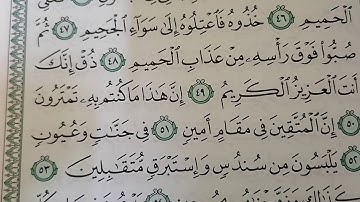 ٱلْحَمِيمِ ٤٦ خُذُوهُ فَٱعْتِلُوهُ إِلَىٰ سَوَآءِ ٱلْجَحِيمِ ٤٧ ثُمَّ
صُبُّوا۟ فَوْقَ رَأْسِهِۦ مِنْ عَذَابِ ٱلْحَمِيمِ ٤٨ ذُقْ إِنَّكَ
أَنتَ ٱلْعَزِيزُ ٱلْكَرِيمُ ٤٩ إِنَّ هَٰذَا مَا كُنتُم بِهِۦ تَمْتَرُونَ
٥٠ إِنَّ ٱلْمُتَّقِينَ فِى مَقَامٍ أَمِينٍ ٥١ فِى جَنَّٰتٍ وَعُيُونٍ
٥٢ يَلْبَسُونَ مِن سُندُسٍ وَإِسْتَبْرَقٍ مُّتَقَٰبِلِينَ ٥٣